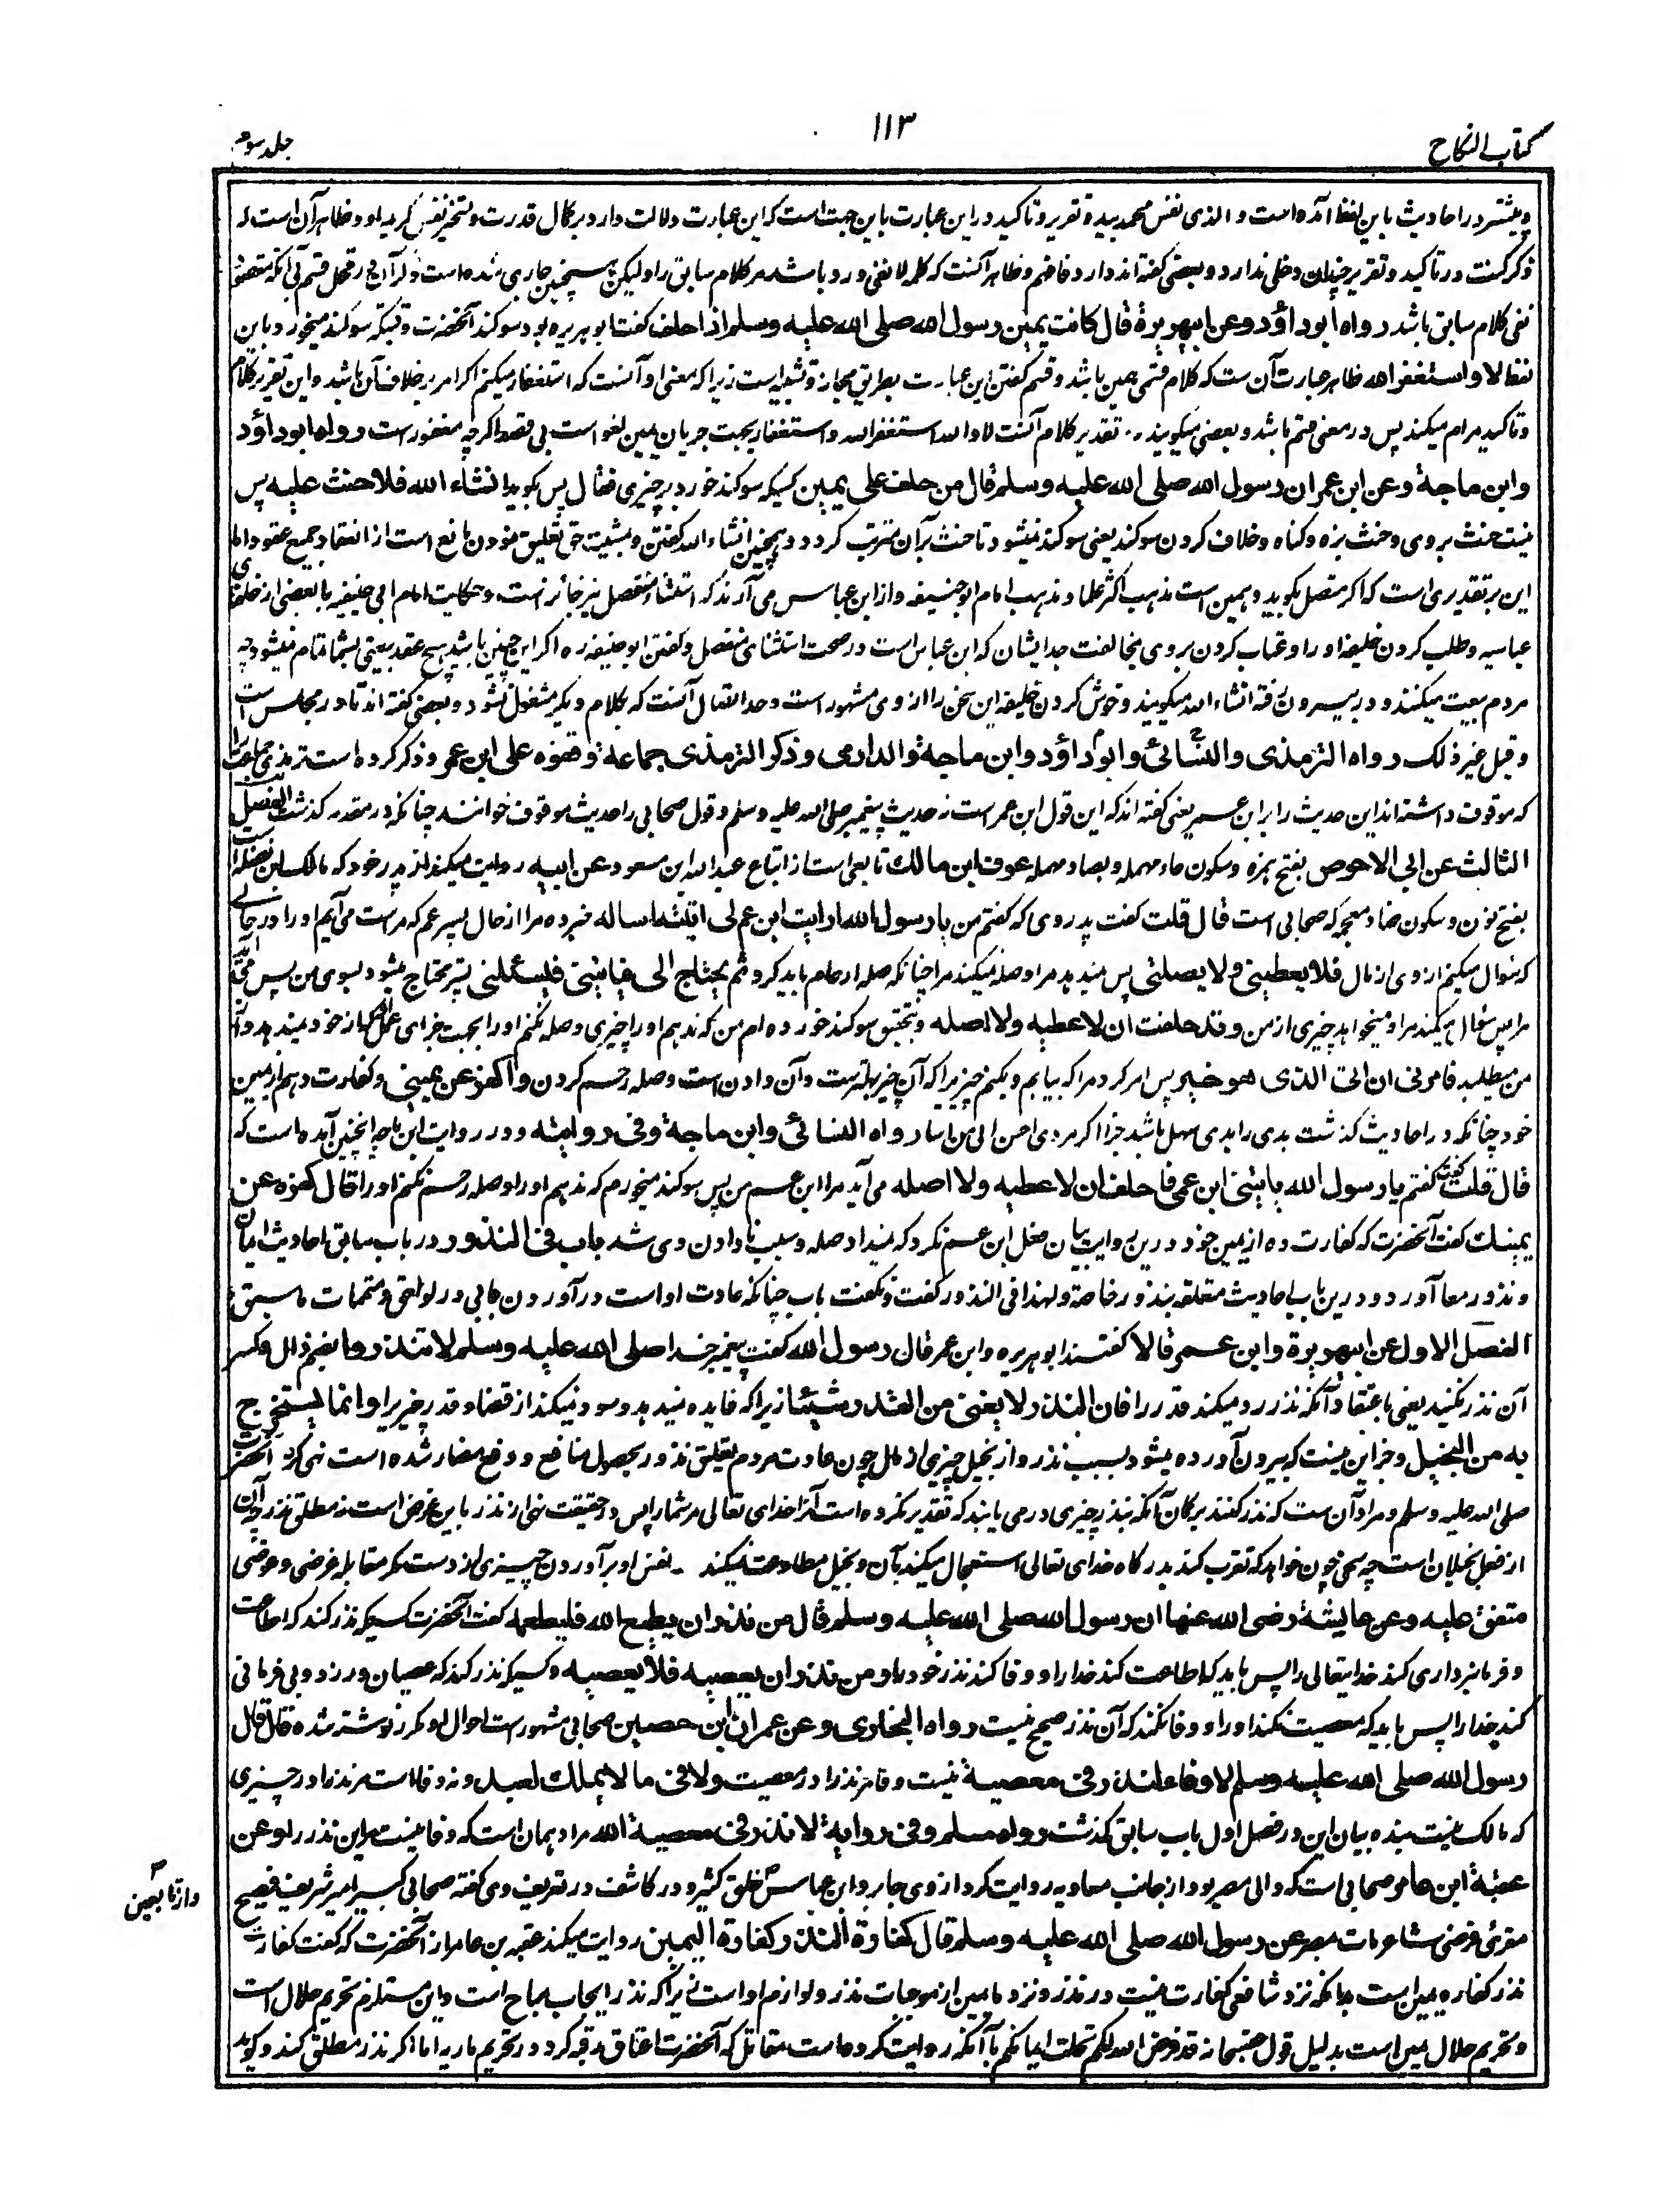 کتاب النکاح
۱۱۳
جلد سوم
و بیشتر در احادیث باین لفظ آمده است و الذی نفس محمد بیده و تقریر و تاکید در این عبارت باین جهت است که این عبارت دلالت دارد بر کمال قدرت و تسخیر نفس کریمه او و ظاهر آن است که
ذکر کنیت در تاکید و تقریر چندان دخلی ندارد و بعضی گفته اند
نفی کلام سابق باشد رواه ابوداؤد وعن ابیهریرة قال کانت یمین رسول الله صلی الله علیه وسلم اذا حلف گفت ابوهریره بود سوگند آنحضرت وقتیکه سوگند میخورد باین
لفظ لا واستغفر الله ظاهر عبارت آن ست که کلام قسمی یمین باشد و قسم گفتن این عبارت بطریق مجاز و تشبیه است زیرا که معنی او آنست که استغفار میکنم اگر امر بر خلاف آن باشد و این تقریر کلام
و تاکید مرام میکند پس در معنی قسم باشد و بعضی میگویند تقدیر کلام آنست لا والله استغفر الله و استغفار بجهت جریان یمین لغو است بی قصد اگرچه مغفورست رواه ابوداؤد
وابن ماجة وعن ابن عمر ان رسول الله صلی الله علیه وسلم قال من حلف علی یمین کسیکه سوگند خورد بر چیزی فقال پس بگوید انشاء الله فلا حنث علیه پس
نیست حنث بروی و حنث بزه و گناه و خلاف کردن سوگند یعنی سوگند نمیشود تا حنث بر آن مترتب گردد و همچنین انشاء الله گفتن و بمشیت حق تعلیق نمودن مانع است از انعقاد جمیع عقود اما
این بر تقدیری است که اگر متصل بگوید و همین است مذهب اکثر علما و مذهب امام ابوحنیفه و از ابن عباس می آرند که استثناء منفصل نیز جائز است و حکایت امام ابی حنیفه با بعضی از خلفای
عباسیه و طلب کردن خلیفه او را و عتاب کردن بر وی مخالفت جد ایشان که ابن عباس است در صحت استثنای منفصل و گفتن ابوحنیفه ره اگر این چنین باشد هیچ عقد بیعتی بشما تمام نمیشود چه
مردم بیعت میکنند و بیرون رفته انشاء الله میگویند و خوش کردن خلیفه این سخن را از وی مشهور است وحد اتصال آنست که بکلام دیگر مشغول نشود و بعضی گفته اند تا در مجلس است
وقیل غیر ذلک رواه الترمذی والنسائی وابوداؤد وابن ماجة والدارمی وذکر الترمذی جماعة وقفوه علی ابن عمر وذکر کرده است ترمذی جماعت را
که موقوف داشته اند این حدیث را بر ابن عمر یعنی گفته اند که این قول ابن عمر است نه حدیث پیغمبر صلی الله علیه وسلم و قول صحابی را حدیث موقوف خوانند چنانکه در مقدمه گذشت الفصل
الثالث عن ابی الاحوص بفتح همزه و سکون حاء مهمله و بصاد مهمله عوف ابن مالک تابعی است از اتباع عبد الله ابن مسعود عن ابیه روایت میکند از پدر خود که مالک ابن نضله است
بفتح نون و سکون ضاد معجمه که صحابی است قال قلت گفت پدر وی که گفتم من یا رسول الله ارایت ابن عم لی اتیته اساله خبر ده مرا از حال پسر عم که مراست می آیم او را در حالی
که سوال میکنم از وی از مال فلا یعطینی ولا یصلنی پس نمیدهد مرا و صله نمیکند مرا چنانکه صله ارحام باید کرد ثم یحتاج الی فیاتینی فیسئلنی پستر محتاج میشود بسوی من پس می آید
مرا پس سؤال میکند مرا و میخواهد چیزی از من وقد حلفت ان لا اعطیه ولا اصله و بتحقیق سوگند خورده ام من که ندهم او را چیزی و صله نکنم او را بجهت جزای عمل
من میطلبد فامرنی ان اتی الذی هو خیر پس امر کرد مرا که بیایم و بکنم چیزیرا که آن چیز بهترست و آن دادن است و صله رحم کردن واکفر عن یمینی و کفارت دهم از یمین
خود چنانکه در احادیث گذشت بدی را بدی سهل باشد جزا اگر مردی احسن الی من اسا رواه النسائی وابن ماجة وفی روایته و در روایت ابن ماجه اینچنین آمده است که
قال قلت گفت گفتم یا رسول الله یاتینی ابن عمی فاحلف ان لا اعطیه ولا اصله می آید مرا ابن عم من پس سوگند میخورم که ندهم او را و صله رحم نکنم او را قال کفره عن
یمینک گفت آنحضرت که کفارت ده از یمین خود و درین روایت بیان فعل ابن عم نکرد که نمیداد صله و سبب نا دادن وی شد باب فی النذور در باب سابق احادیث ایمان
و نذور معا آورد و درین باب احادیث متعلقه بنذور خاصة ولهذا فی النذور گفت و نگفت باب چنانکه عادت او است در آوردن بابی در لواحق و متممات ما سبق
الفصل الاول عن ابیهریرة وابن عمر قالا گفتند ابوهریره و ابن عمر قال رسول الله گفت پیغمبر خدا صلی الله علیه وسلم لا تنذروا بضم ذال و کسر
آن نذر نکنید یعنی باعتقاد آنکه نذر رد میکند قدر را فان النذر لا یغنی من القدر شیئا زیرا که فایده نمیدهد و سود نمیکند از قضا و قدر چیزی را وانما یستخرج
به من البخیل وجز این نیست که بیرون آورده میشود بسبب نذر و از بخیل چیزی از مال چون عادت مردم تعلیق نذور بحصول منافع و دفع مضار شده است نهی کرد آنحضرت
صلی الله علیه وسلم و مراد آن ست که نذر نکنند بر گمان آنکه بنذر چیزی در می یابند که تقدیر نکرده است آنرا خدای تعالی مر شما را پس در حقیقت نهی از نذر باین غرض است نه مطلق نذر چه آن
از فعل بخیلان است چه سخی چون خواهد که تقرب کند بدرگاه خدای تعالی استعجال میکند بآن و بخیل مطاوعت نمیکند نفس او بر آوردن چیزی از دست مگر مقابله غرضی و عوضی
متفق علیه وعن عایشة رضی الله عنها ان رسول الله صلی الله علیه وسلم قال من نذر ان یطیع الله فلیطعه گفت آنحضرت کسیکه نذر کند که اطاعت
و فرمانبرداری کند خدایتعالی را پس باید که اطاعت کند خدا را و وفا کند نذر خود را ومن نذر ان یعصیه فلا یعصیه و کسیکه نذر کند که عصیان ورزد و بی فرمانی
کند خدا را پس باید که معصیت نکند او را و وفا نکند که آن نذر صحیح نیست رواه البخاری وعن عمران ابن حصین صحابی مشهورست احوال او مکرر نوشته شده قال قال
رسول الله صلی الله علیه وسلم لا وفاء لنذر فی معصیة نیست وفا مر نذر را در معصیت ولا فی ما لا یملک لعبد و نه وفاست مر نذر را در چیزی
که مالک نیست بنده بیان این در فصل اول باب سابق گذشت رواه مسلم وفی روایة لا نذر فی معصیة الله مراد همان است که وفا نیست مر این نذر را وعن
عقبة ابن عامر صحابی است که والی مصر بود از جانب معاویه روایت کرد از وی جابر و ابن عباس خلق کثیر و در کاشف در تعریف وی گفته صحابی کبیر امیر شریف فصیح
و از تابعین
مقرئ فرضی شاعر مات بمصر عن رسول الله صلی الله علیه وسلم قال کفارة النذر کفارة الیمین روایت میکند عقبه بن عامر از آنحضرت که گفت کفارت
نذر کفاره یمین است بدانکه نزد شافعی کفارت نیست در نذر و نزد ما یمین از موجبات نذر و لوازم او است زیرا که نذر ایجاب مباح است و این مستلزم تحریم حلال است
و تحریم حلال یمین است بدلیل قول حق سبحانه قد فرض الله لکم تحلة ایمانکم با آنکه روایت کرده است مقاتل که آنحضرت اعتاق رقبه کرد در تحریم ماریه اما اگر نذر مطلق کند و گوید